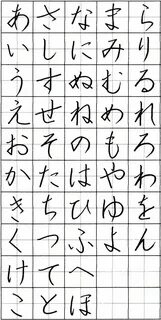 あいうえおかきくけこ
さしすせそたちつてと
なにぬねのはひふへほ
まみむめもやゆよ
らりるれろわをん